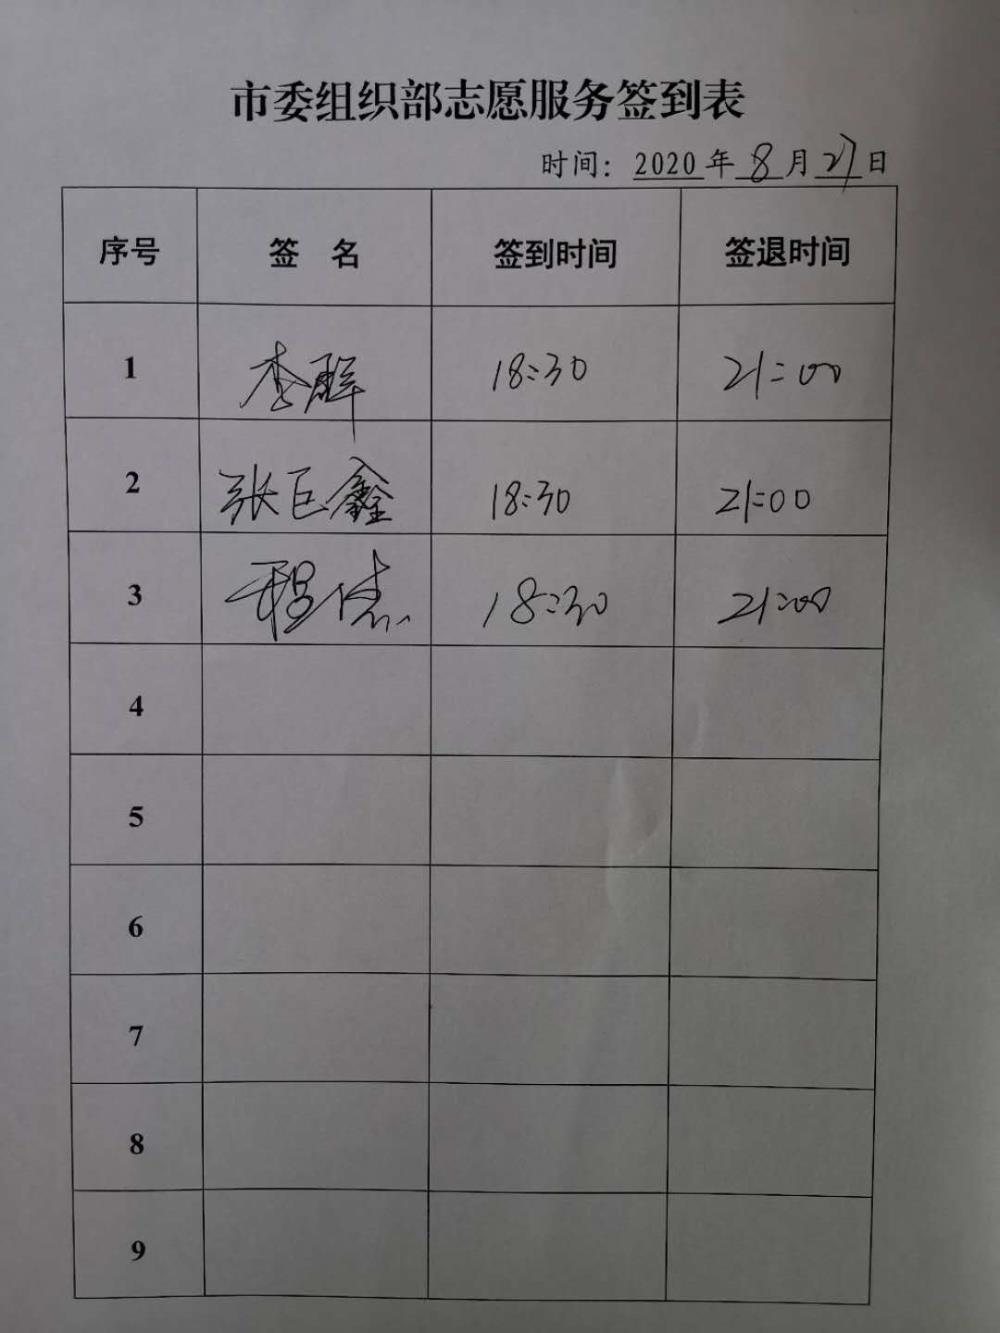 市委组织部志愿服务签到表
时间：2020年8月27日
序号 签 名 签到时间 签退时间
1 李 18:30 21:00
2 张巨鑫 18:30 21:00
3 程 18:30 21:00
4
5
6
7
8
9